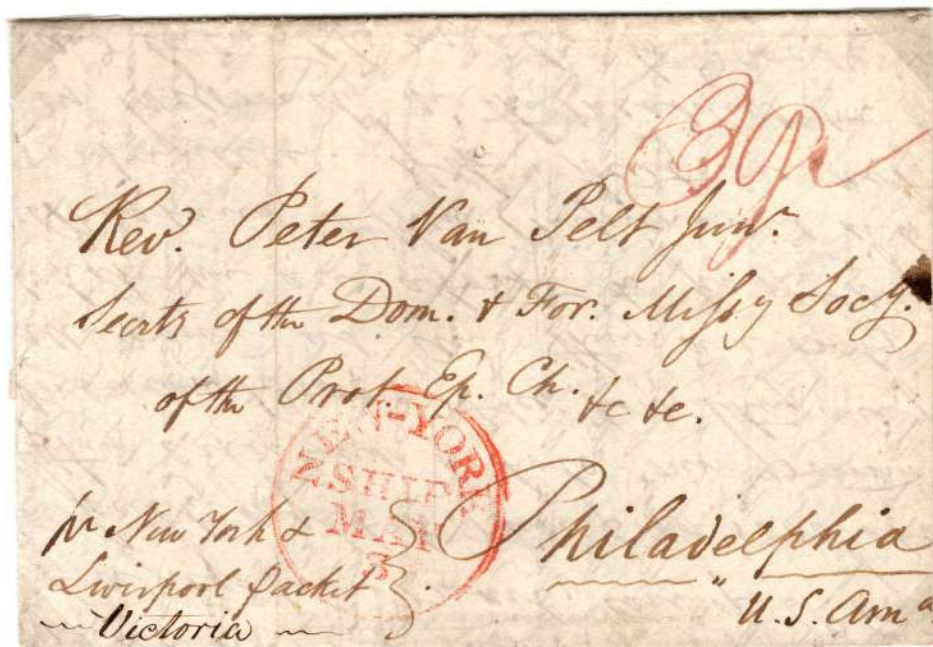 39
Rev. Peter Van Pelt Junr.
Secrty of the Dom. & For. Missy Socy.
of the Prot. Ep. Ch. &c &c.
NEW-YORK
SHIP
MAY
pr New York &
Liverpool packet
Victoria
Philadelphia
U.S. Ama